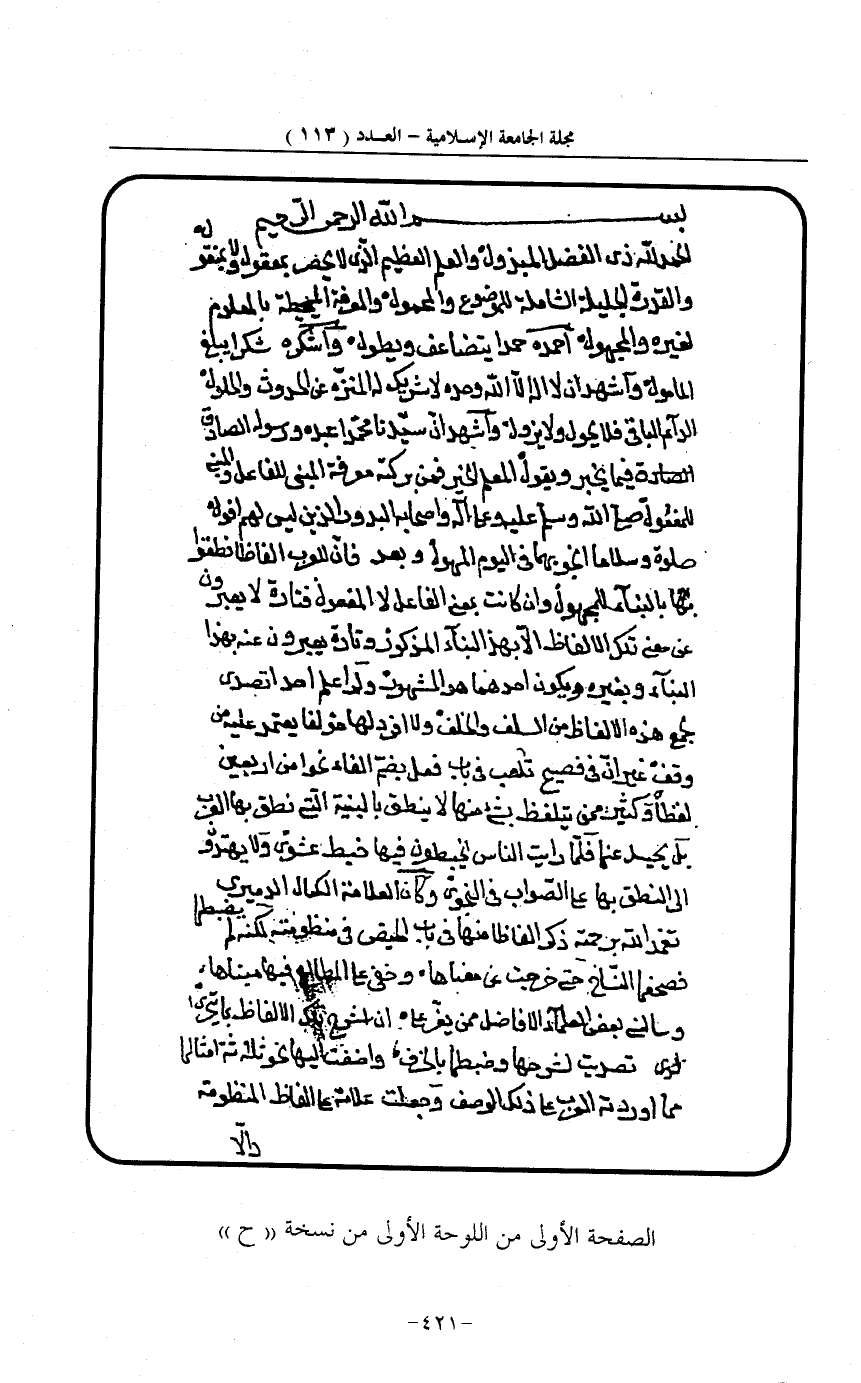 مجلة الجامعة الإسلامية – العـدد ( ١١٣ )
بســـم الله الرحمن الرحيم
الحمد لله ذى الفضل المبذول والعلم العظيم الذى لا يختص بمعقول ولا بمنقول
والقدرة الجليلة الشاملة للموضوع والمحمول والمعرفة المحيطة بالمعلوم
لغيره والمجهول احمده حمدا يتضاعف ويطول وأشكره شكرا يبلغ
المامول وأشهد ان لا اله الا الله وحده لا شريك له المنزه عن الحدوث والحلول
الدآئم الباقى فلا يحول ولا يزول وأشهد انّ سيّدنا محمّدا عبده ورسوله الصادق
فيما يخبر ويقول المعلم الخير فمن بركته معرفة المبنى للفاعل والمبنى
للمفعول صلى الله وسلم عليه وعلى اله واصحابه البدور الذين ليس لهم افول
صلوة وسلاما انجو بهما فى اليوم المهول وبعد فانّ للعرب الفاظا نطقوا
بها بالبنآء للمجهول وان كانت بمعنى الفاعل لا المفعول فتارة لا يعبرون
عن معنى تلك الالفاظ الّا بهذا البنآء المذكور وتارة يعبرون عنه بهذا
البنآء وبغيره ويكون احدهما هو المشهور ولم اعلم احدا تصدى
لجمع هذه الالفاظ من السلف والخلف ولا افرد لها مؤلفا يعتمد عليه من
وقف غير انّ فى فصيح ثعلب فى باب فعل بضم الفاء نحوا من اربعين
لفظا وكثير ممن يتلفظ بشئ منها لا ينطق بالبنية التى نطق بها العرب
بل يحيد عنها فلمّا رايت الناس يخبطون فيها خبط عشوى ولا يهتدون
الى النطق بها على الصّواب فى النجوى وكان العلامة الكمال الدميرى
تغمده الله برحمته ذكر الفاظا منها فى باب الحيض فى منظومته لكنه لم يضبطها
فصحفها النسّاخ حتى خرجت عن معناها وخفى على المطالع فيها مبناها
وسالنى بعض العلمآء الافاضل ممن يعز على ان اشرح تلك الالفاظ
تصديت لشرحها وضبطها بالحرف واضفت اليها نحو ثلاثة امثالها
مما اوردته العرب على ذلك الوصف وجعلت علامة على الفاظ المنظومة
دالا
الصفحة الأولى من اللوحة الأولى من نسخة (( ح ))
-٤٢١-